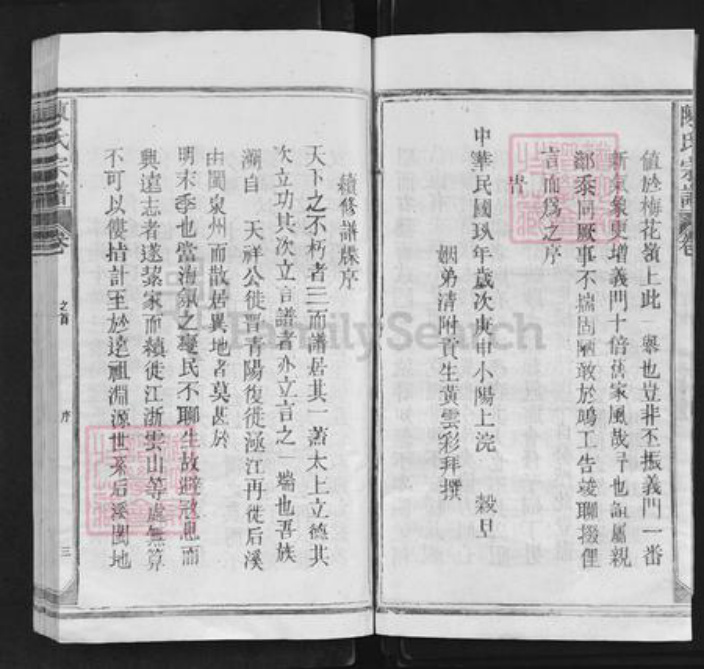 陳氏宗譜 卷
値於梅花嶺上此 舉也豈非丕振義門一番
新氣象更增義門十倍舊家風哉予也誼屬親
鄰忝同厥事不揣固陋敢於鳩工告竣聊掇俚
言而爲之序
旹
中華民國玖年歲次庚申小陽上浣 穀旦
姻弟清附貢生黃雲彩拜撰
續修譜牒序
天下之不朽者三而譜居其一蓋太上立德其
次立功其次立言譜者亦立言之一端也吾族
溯自 天祥公徙晋青陽復徙涵江再徙后溪
由閩泉州而散居異地者莫甚於
明末季也當海氛之憂民不聊生故避寇患而
興遠志者遂挈家而轉徙江浙雲山等處無算
不可以僂指計至於遠祖淵源世系后溪園地
陳氏宗譜 卷
之首
序
三
FamilySearch